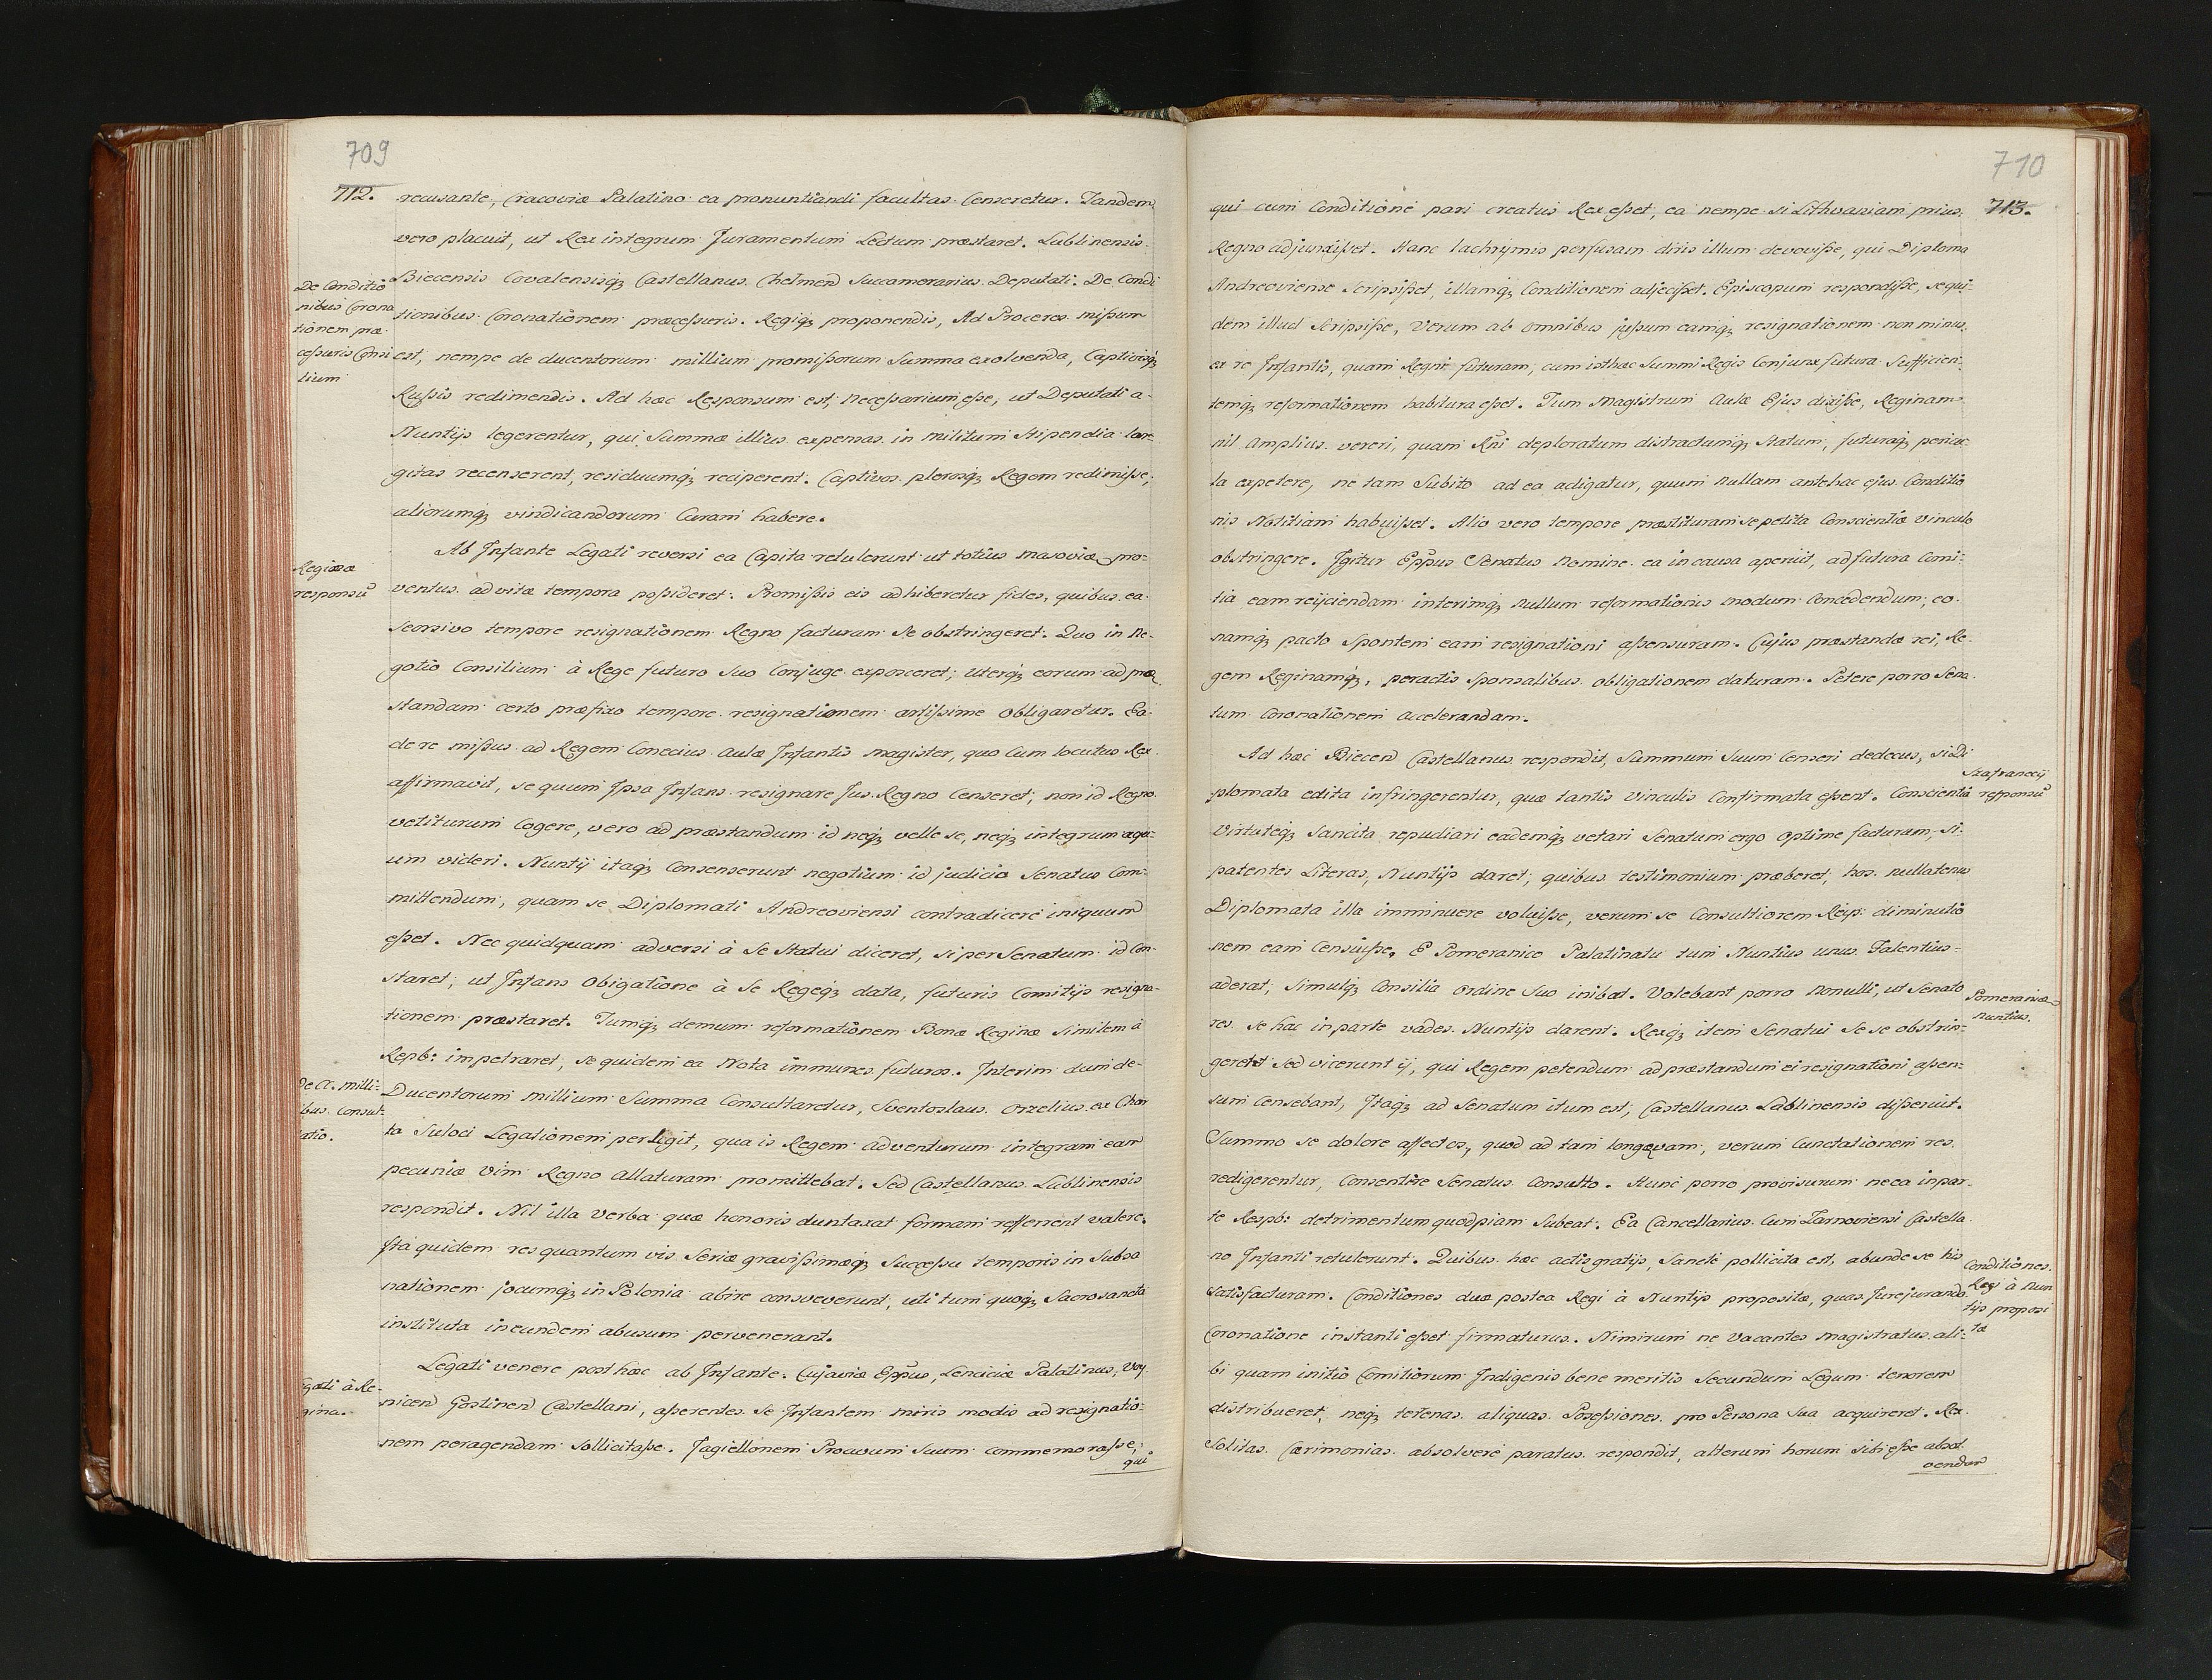 709
712.
recusante, Cracoviæ Palatino ea pronuntiandi facultas Censeretur. Tandem
vero placuit, ut Rex integrum Juramentum Lectum præstaret. Lublinensis
Biecensis Covalensisq; Castellanus. Chelmen Succamerarius. Deputati. De Condi
tionibus Coronationem præcessuris. Regiq; proponendis, Ad Proceres missum
est, nempe de ducentorum millium promissorum Summa exolvenda, Captivisq;
Russis redimendis. Ad hæc Responsum est; Necessarium esse, ut Deputati a-
Nuntijs legerentur, qui Summæ illius expensas in militum Stipendia lar-
gitas recenserent, residuumq; reciperent. Captivos plerosq; Regem redimisse,
aliorumq; vindicandorum Curam habere.
De Conditio
nibus Corona
tionem præ
cessuris Consi
lium
Ab Infante Legati reversi ea Capita retulerunt ut totius masoviæ pro-
ventus ad vitæ tempora possideret. Promissis eis adhiberetur fides, quibus ea
Seorsivo tempore resignationem Regno facturam Se obstringeret. Quo in Ne-
gotio Consilium à Rege futuro Suo Conjuge exposceret; uterq; eorum ad præ
standam certo præfixo tempore resignationem artissime Obligaretur. Ea
de re missus ad Regem Conecius Aulæ Infantis magister, quo Cum locutus Rex
affirmavit, se quum Ipsa Infans resignare Jus Regno Censeret; non id Regno
vetiturum Cogere, vero ad præstandum id neq; velle se, neq; integrum æqu-
um videri. Nuntij itaq; Consenserunt negotium id judicio Senatus Com-
mittendum, quam se Diplomati Andreoviensi contradicere iniquum
esset. Nec quidquam adversi à Se Statui diceret, si per Senatum id Con-
staret; ut Infans Obigatione à Se Regeq; data, futuris Comitijs resigna-
tionem præstaret. Tumq; demum reformationem Bonæ Reginæ similem à
Repb: impetraret, se quidem ea Nota immunes futuros. Interim dum de-
Ducentorum millium Summa Consultaretur, Sventoslaus Orzelius ex Char
ta Suloci Legationem perligit, qua is Regem adventurum integram eam
pecuniæ vim Regno allaturam promittebat. Sed Castellanus Lublinensis
respondit. Nil illa verba quæ honoris duntaxat formam refferrent valere.
Ita quidem res quantum vis Seriæ gravissimæq; Successu temporis in Subsa
nationem jocumq; in Polonia abire consveverunt, uti tum quoq; Sacrosancta
instituta in eundem abusum pervenerant.
Reginæ
responsū
De CC. milli-
ibus Consul-
tatio.
Legati venere post hæc ab Infante. Cujaviæ Eppus, Lenciciæ Palatinus, Voy
nicen Gostinen Castellani, asserentes Se Infantem miris modis ad resignatio-
nem peragendam Sollicitasse. Jagiellonem Proavum Suum commemorasse,
qui
gati à Re-
gina.
710
713.
qui cum Conditione pari creatus Rex esset, ea nempe si Lithvaniam prius
Regno adjunxisset. Hanc lachrymis perfusam diris illum devovisse, qui Diploma
Andreoviense Scripsisset, illamq; Conditionem adjecisset. Episcopum respondisse, se qui-
dem illud Scripsisse, Verum ab omnibus jussum eamq; resignationem non minus
ex re Infantis, quam Regni futuram, cum isthæc Summi Regis Conjunx futura Sufficien-
temq; reformationem habitura esset. Tum Magistrum Aulæ Ejus dixisse, Reginam
nil amplius vereri, quam Rni deploratum distractumq; Statum, futuraq; pericu
la expetere, ne tam Subito ad ea adigatur, quum Nullam antehac ejus Conditio
nis Notitiam habuisset. Alio vero tempore præstituram se petita Conscientiæ vinculo
obstringere. Igitur Eppus Senatus Nomine ea in causa aperuit, ad futura Comi-
tia eam reijciendam interimq; Nullum reformationis modum Concedendum; eo
namq; pacto Spontem eam resignationi assensuram. Cujus præstandæ rei, Re-
gem Reginamq;, peractis Sponsalibus obligationem daturam. Petere porro Sena
tum Coronationem accelerandam.
Ad hæc Biecen Castellanus respondit, Summum Suum Censeri dedecus, si Di
plomata edita infringerentur, quæ tantis vinculis Confirmata essent. Conscientiæ
virtuteq; Sancita repudiari eademq; vetari Senatum ergo Optime facturum, si-
patentes Literas, Nuntijs daret, quibus testimonium præberet, hos nullatenus
Diplomata illa imminuere voluisse, verum se Consultiorem Reip: diminutio
nem eam Censuisse. E Pomeranico Palatinatu tum Nuntius unus Falentius
aderat, Simulq; Consilia Ordine Suo inibat. Volebant porro Nonulli, ut Senato
res se hac in parte vades Nuntijs darent. Rexq; item Senatui Se se obstrin-
geret Sed vicerunt ij, qui Regem petendum ad præstandum ei resignationi assen-
sum Censebant, Itaq; ad Senatum itum est; Castellanus Lublinensis disseruit.
Summo se dolore affectos, quod ad tam longævam, verum Cunctationem res
redigerentur, Consentire Senatus Consulto. Hunc porro provisurum ne ea in par
te Respb: detrimentum quodpiam Subeat. Ea Cancellarius Cum Tarnoviensi Castella
no Infanti retulerunt. Quibus hæc actis gratijs, Sancte pollicita est, abunde se his
Satisfacturam. Conditiones duæ postea Regi à Nuntijs propositæ, quas Jurejurando
Coronatione instanti esset firmaturus. Nimirum ne Vacantes Magistratus ali-
bi quam initio Comitiorum Indigenis bene meritis Secundum Legum tenorem
distribueret, neq; terrenas aliquas Possessiones pro Persona Sua acquireret. Rex
Solitas Cærimonias absolvere paratus respondit, alterum horum sibi esse absol
vendum
Szafranecij
responsū
Pomeraniæ
Nuntius.
Conditiones
Regi à Nun
tijs proposi
tæ